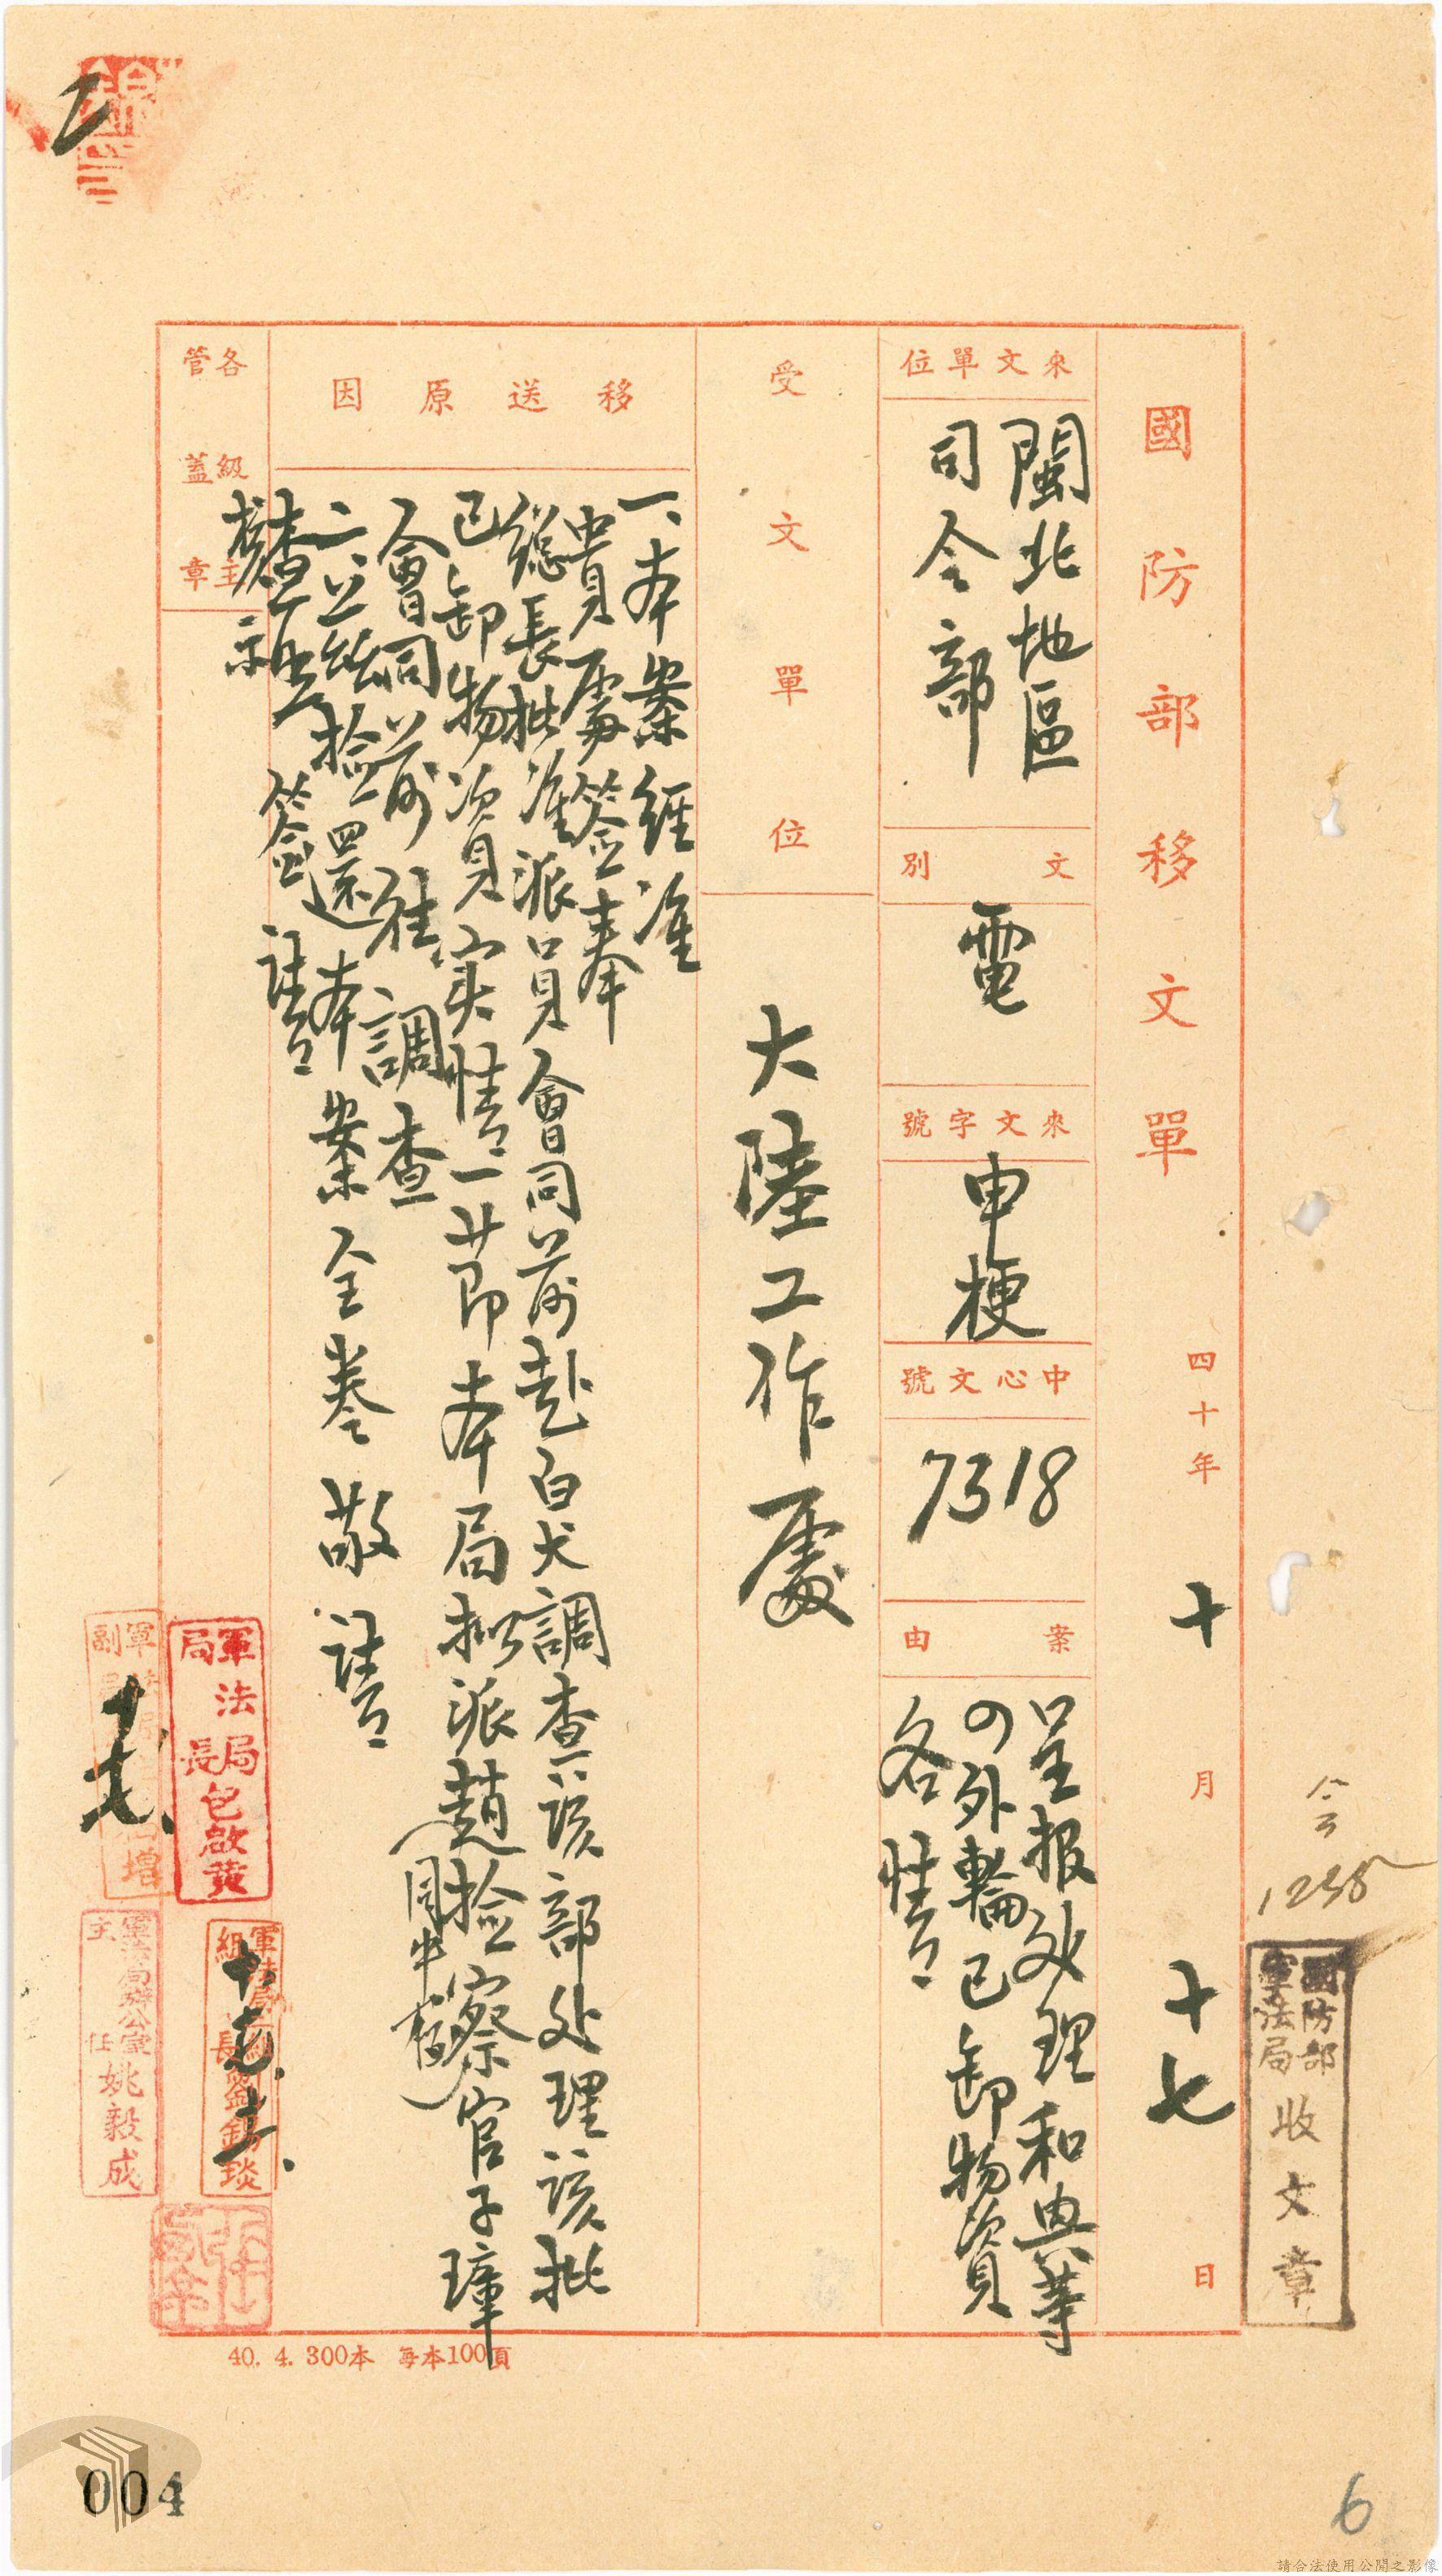 國防部移文單
四十年十月十七日
來文單位
閩北地區
司令部
文別
電
來文字號
申梗
中心文號
7318
案由
呈报处理和興等
の外輪已卸物資
各情
受文單位
大陸工作處
移送原因
一、本案經准
貴處簽奉
總長批准派員會同前赴白犬調查該部处理該批
已卸物資实情一节本局拟派趙檢察官子璋
會同前往調查
二、茲檢還本案全卷敬請
查照
簽請
核示
各級主管蓋章
軍法局局長包啟黃
軍法局辦公室主任姚毅成
國防部軍法局收文章
1238
40. 4. 300本 每本100頁
004
6
請合法使用公開之影像